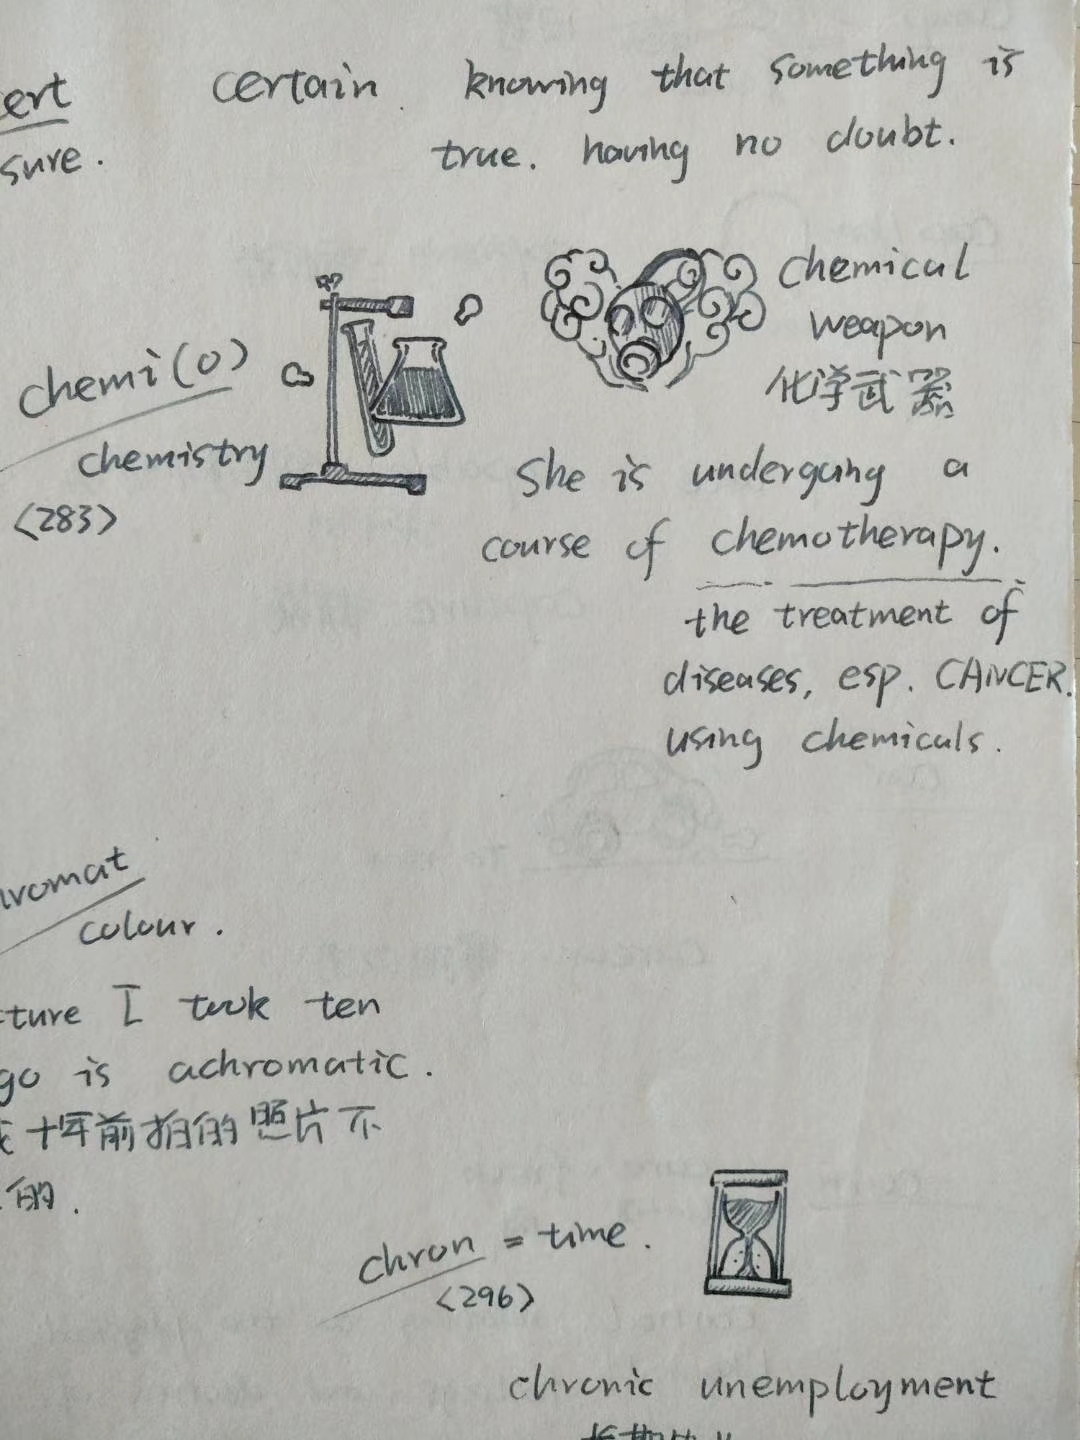 ert certain knowing that something is
sure. true. having no doubt.
chemical
weapon
化学武器
chemi(o)
chemistry
<283>
She is undergoing a
course of chemotherapy.
the treatment of
diseases, esp. CANCER.
using chemicals.
hromat
colour.
cture I took ten
go is achromatic.
十年前拍的照片不
的.
chron = time.
<296>
chronic unemployment